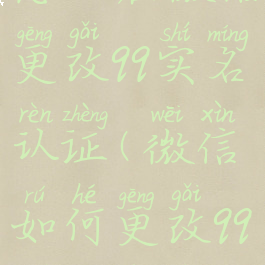 gēng gǎi shí míng
更改99实名
rèn zhèng wēi xìn
认证(微信
rú hé gēng gǎi
如何更改99